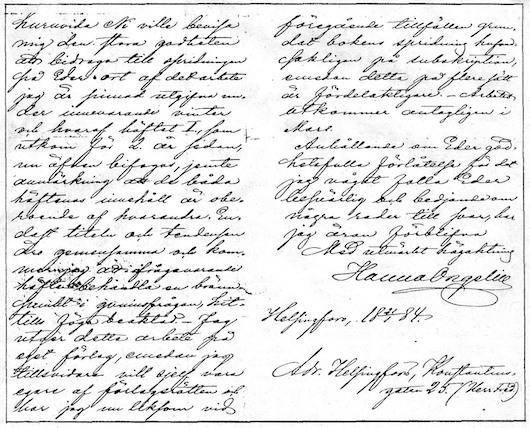 huruvida Ni ville bevisa
mig den stora godheten
att bidraga till spridningen
på Eder ort af det arbete
jag är sinnad utgifva un-
der innevarande vinter
och hvaraf häftet I, som
utkom för 2 år sedan,
nu äfven bifogas, jemte
anmärkning att de båda
häftenas innehåll är obe-
roende af hvarandra. En-
dast titeln och tendensen
äro gemensamma och kom-
mer att ifrågavarande
häfte behandla en brann-
i qvinnofrågan, hit-
tills föga beaktad. – Jag
utger detta arbete på
eget förlag, emedan jag
tillsvidare vill sjelf vara
egare af förlagsrätten och
har jag nu liksom vid
föregående tillfällen grun-
dat bokens spridning hufvud-
sakligen på subskription,
emedan detta på flere sätt
är fördelaktigare. – Arbetet
utkommer antagligen i
Mars.
Anhållande om Eder god-
hetsfulla förlåtelse för det
jag vågat falla Eder
besvärlig och bedjande om
några rader till svar, har
jag äran förblifva
Med utmärkt högaktning
Hanna Ongelin
Helsingfors, 18 84.
Adr. Helsingfors, Konstantins-
gatan 25.